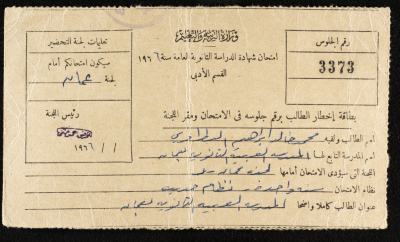 وزارة التربية والتعليم
امتحان شهادة الدراسة الثانوية العامة سنة ١٩٦٦
القسم الأدبي
رقم الجلوس
3373
تعليمات لجنة التحضير
سيكون امتحانكم أمام
لجنة عمان
رئيس اللجنة
/ / ١٩٦٦
بطاقة إخطار الطالب برقم جلوسه فى الامتحان ومقر اللجنة
اسم الطالب ولقبه محمد خالد ابراهيم
اسم المدرسة التابع لها المدرسة السعيدية الثانوية بعمان
اللجنة التى سيؤدى الامتحان أمامها لجنة عمان
نظام الامتحان سنة واحدة نظام حديث
عنوان الطالب كاملا واضحا المدرسة السعيدية الثانوية بعمان